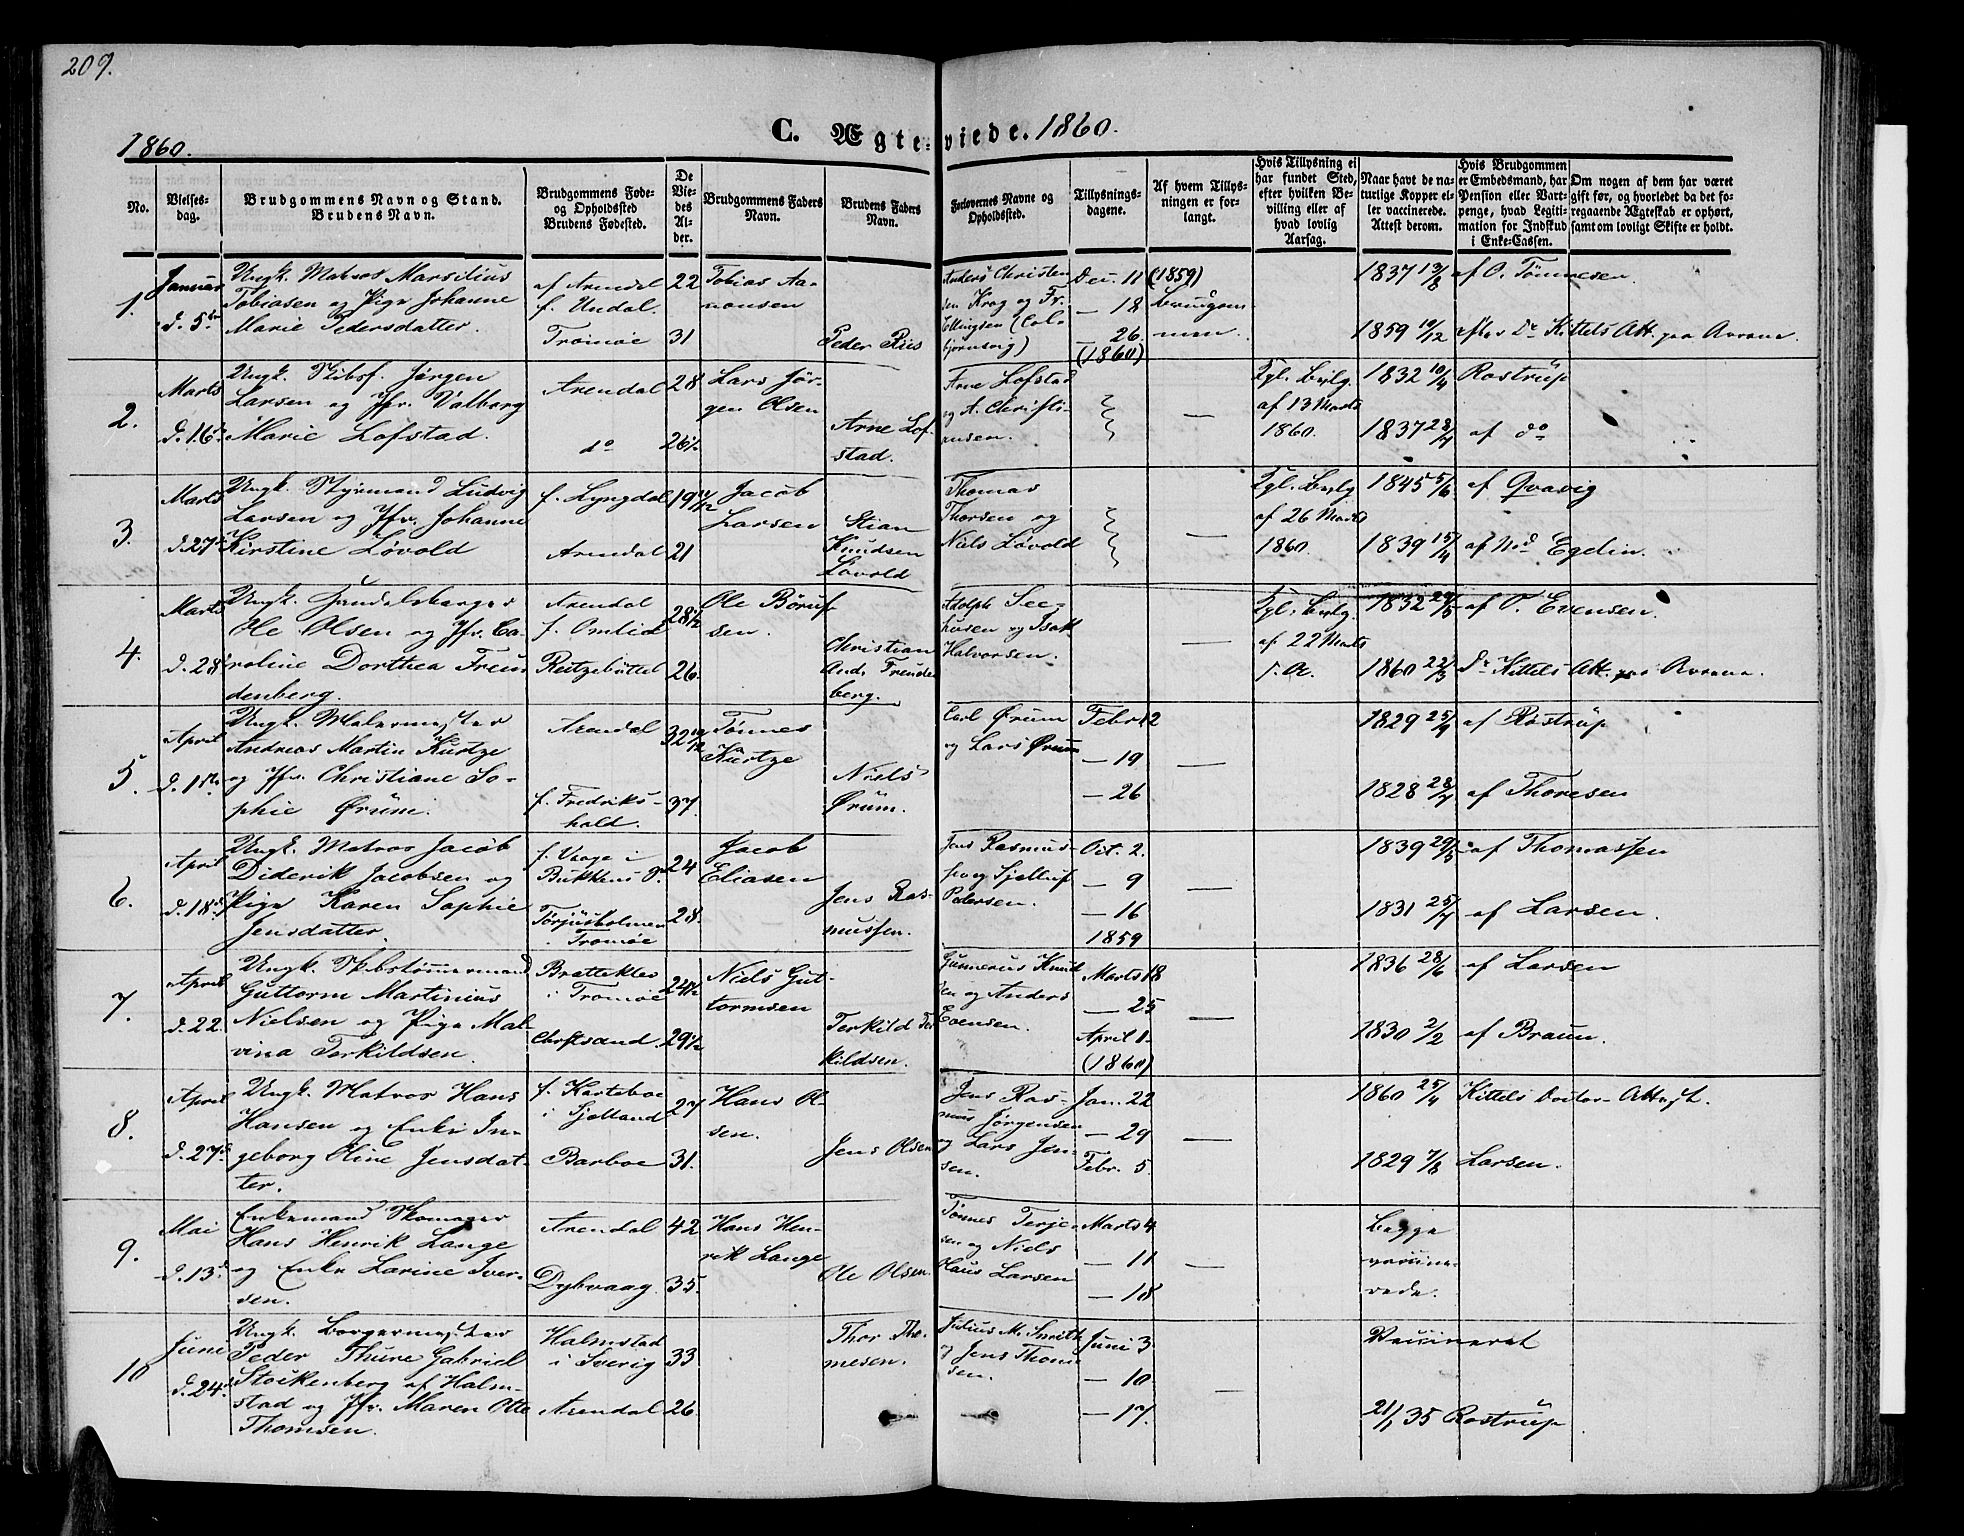 209.
1860.
C. Ægteviede. 1860.
No.
Vielses-
dag.
Brudgommens Navn og Stand.
Brudens Navn.
Brudgommens Føde-
og Opholdssted
Brudens Fødested.
De
Vie-
des
Al-
der.
Brudgommens Faders
Navn.
Brudens Faders
Navn.
Forlovernes Navne og
Opholdssted.
Tillysnings-
dagene.
Af hvem Tillys-
ningen er for-
langt.
Hvis Tillysning ei
har fundet Sted,
efter hvilken Be-
villing eller af
hvad lovlig
Aarsag.
Naar havt de na-
turlige Kopper el-
ler vaccinerede.
Attest derom.
Hvis Brudgommen
er Embedsmand, har
Pension eller Vart-
penge, hvad Legiti-
mation for Indskud
i Enke-Cassen.
Om nogen af dem har været
gift før, og hvorledet da det fo-
regaaende Ægteskab er ophørt,
samt om lovligt Skifte er holdt.
1.
Januar
d. 5te
Ungk. Matros Marsilius
Tobiasen og Pige Johanne
Marie Pedersdatter.
af Arendal
f. Undal.
Tromøe
22
31
Tobias Aa-
nonsen
Peder Riis
Anders Christen
sen Krog og Fr.
Ellingsen (Col-
bjørnsvig)
Dec. 11
— 18
— 26
(1860)
(1859)
Brudgom-
men.
1837 13/8 af O. Tønnesen.
1859 10/12 efter Dr Kittels Att. paa Avrene.
2.
Marts
d. 16de
Ungk. Skibsf. Jørgen
Larsen og Jfr. Valborg
Marie Lofstad.
Arendal
do
28
26½
Lars Jør-
gen Olsen
Arne Lof-
stad.
Arne Lofstad
og A. Christi-
ansen.
—
Kgl. Bevlg.
af 13 Marts
1860.
1832 10/4 Rostrup
1837 28/7 af do
3.
Marts
d. 27de
Ungk. Styrmand Ludvig
Larsen og Jfr. Johanne
Kirstine Løvold
f. Lyngdal
Arendal
19 11/12
21
Jacob
Larsen
Stian
Knudsen
Løvold
Thomas
Thorsen og
Niels Løvold
—
Kgl. Bevlg
af 26 Marts
1860.
1845 5/6 af Qvavig
1839 15/4 af Nd Egelin.
4.
Marts
d. 28de
Ungk. Handelsborger
Ole Olsen og Jfr. Ca-
roline Dorthea Freu-
denberg.
Arendal
f. Omlid
Ritzebüttel
28½
26.
Ole Børuf-
sen.
Christian
And. Freuden
berg.
Adolph See-
husen og Isak
Halvorsen.
—
Kgl. Bevlg.
af 22 Marts
s. A.
1832 29/5 af O. Evensen.
1860 22/3 Dr Kittels Att. paa Avrene.
5.
April
d. 1ste
Ungk. Malermester
Andreas Martin Kurtze
og Jfr. Christiane So-
phie Ørum.
Arendal
f. Fredriks-
hald.
32 10/12
37.
Tønnes
Kurtze
Niels
Ørum.
Carl Ørum
og Lars Ørum
Febr 12
— 19
— 26
—
1829 25/9 af Rostrup
1828 28/7 af Thoresen
6.
April
d. 18de
Ungk. Matros Jacob
Diderik Jacobsen og
Pige Karen Sophie
Jensdatter.
f. Vraga i
Bukkens P.
Torjusholmen
i Tromøe
24
28.
Jacob
Eliasen
Jens Ras-
mussen.
Jens Rasmus-
sen og Sjellruf
Petersen.
Oct. 2.
— 9
— 16
1859
—
1839 29/5 af Thomassen
1831 25/7 af Larsen.
7.
April
d. 22.
Ungk. Skibstømmermand
Guttorm Martinius
Nielsen og Pige Mal-
vina Terkildsen.
Brattekler
i Tromøe
Chrstsand.
24½
29½
Niels Gut-
tormsen
Terkild Ter
kildsen.
Gunnerus Knud
sen og Anders
Evensen.
Marts 18
— 25
April 1.
(1860)
—
1836 28/6 af Larsen
1830 2/2 af Braun.
8.
April
d. 27de
Ungk. Matros Hans
Hansen og Enke In-
geborg Oline Jensdat-
ter.
f. Karteboe
i Sjelland
Barboe
27
31.
Hans Ol-
sen.
Jens Olsen
Jens Ras-
mus Jørgensen
og Lars Jen-
sen.
Jan. 22
— 29
Febr. 5.
—
1860 25/4 Kittels Doctor-Attest.
1829 7/8 Larsen.
9.
Mai
d. 13de
Enkemand Skomager
Hans Henrik Lange
og Enke Larine Iver-
sen.
Arendal
Dybvaag
42
35.
Hans Hen-
rik Lange
Ole Olsen.
Tønnes Terje-
sen og Niels
Claus Larsen
Marts 4
— 11
— 18
—
Begge
vaccine-
rede.
10
Juni
d. 24.
Ungk. Borgermester
Peder Thure Gabriel
Stoikenberg af Halm-
stad og Jfr. Maren Otte
Thomsen.
Halmstad
i Sverig
Arendal
33
26
Thor Tho-
mesen.
Julius M. Smith
og Jens Thom-
sen.
Juni 3
— 10
— 17.
—
Vaccineret
21/1 35 Rostrup